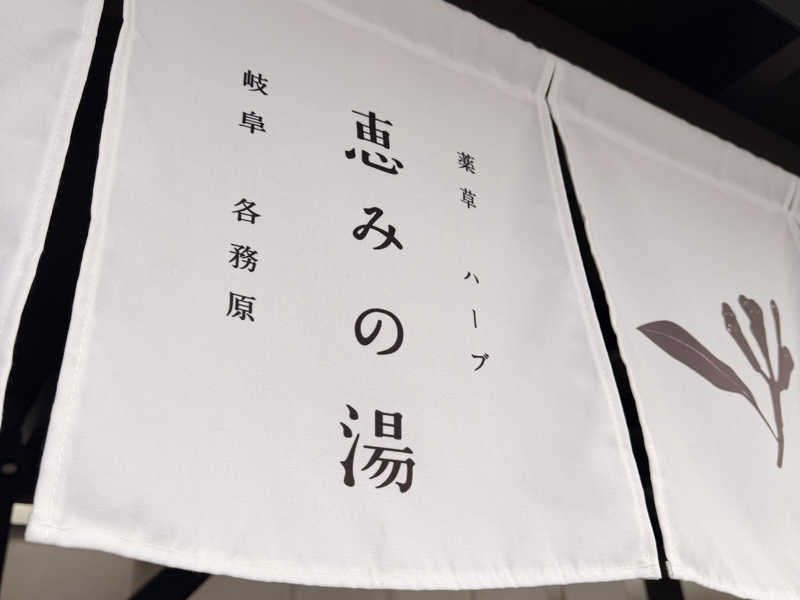 薬草 ハーブ
恵みの湯
岐阜 各務原